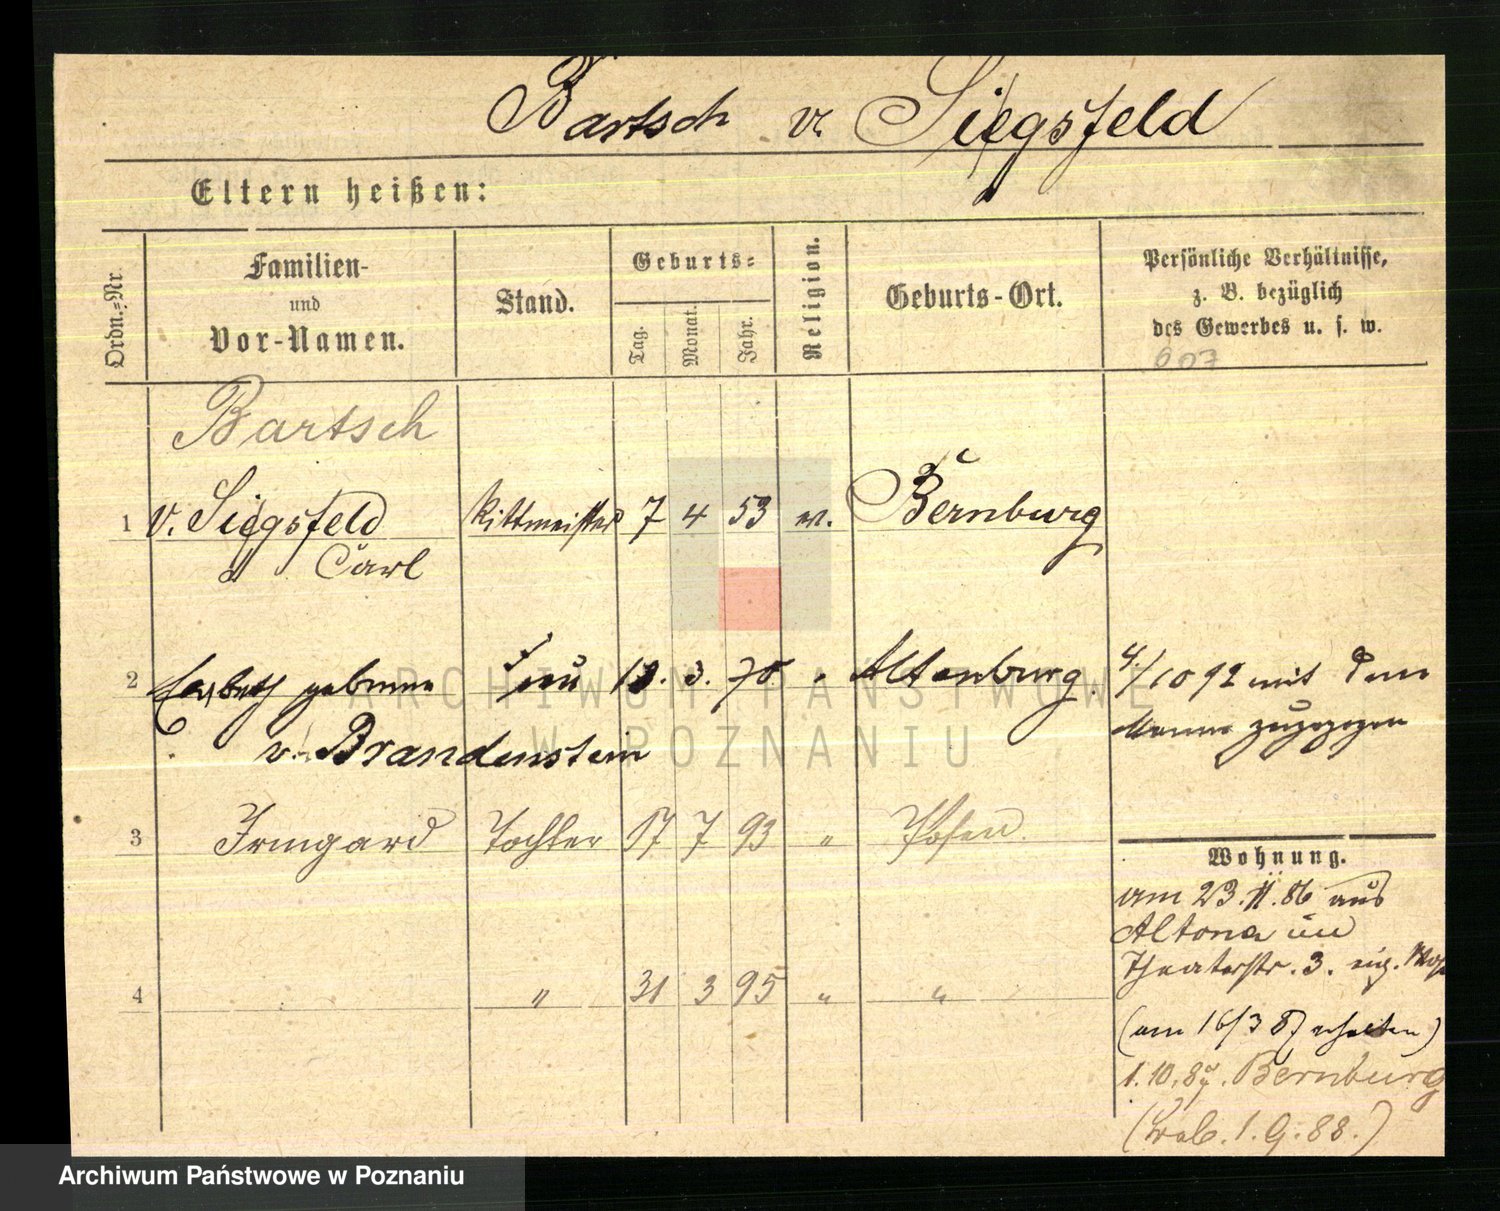 Bartsch v. Siegsfeld
Eltern heißen:
Ordn.-Nr.
Familien-
und
Vor-Namen.
Stand.
Geburts-
Tag.
Monat.
Jahr.
Religion.
Geburts-Ort.
Persönliche Verhältnisse,
z. B. bezüglich
des Gewerbes u. s. w.
607
Bartsch
1 v. Siegsfeld Rittmeister 7 4 53 ev. Bernburg
Carl
2 geborene Frau 13. 3. 70 " Altenburg 4/10 92 mit dem
v. Brandenstein Manne zugezogen
3 Irmgard Tochter 17 7 93 " Posen
Wohnung.
am 23. 11. 86 aus
Altona in
Theaterstr. 3. eig.
4 " 31 3 95 " "
(am 16/3 87 erhalten)
1.10.87. Bernburg
(1.9.88.)
ARCHIWUM PAŃSTWOWE
W POZNANIU
Archiwum Państwowe w Poznaniu